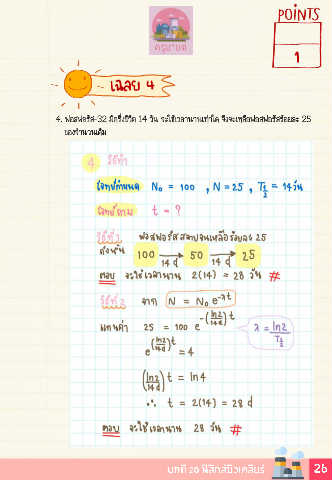 POINTS
1
ครูบาบอ
เฉลย 4
4. ฟอสฟอรัส-32 มีครึ่งชีวิต 14 วัน จะใช้เวลานานเท่าใด จึงจะเหลือฟอสฟอรัสร้อยละ 25
ของจำนวนเดิม
4 วิธีทำ
โจทย์กำหนด N₀ = 100 , N = 25 , T½ = 14 วัน
โจทย์ถาม t = ?
วิธีที่ 1 ฟอสฟอรัสสลายจนเหลือร้อยละ 25
ดังนั้น 100 →(14 d) 50 →(14 d) 25
ตอบ จะใช้เวลานาน 2(14) = 28 วัน #
วิธีที่ 2 จาก N = N₀ e^(-λt)
แทนค่า 25 = 100 e^(-(ln2/14d)t) λ = ln2/T½
e^((ln2/14d)t) = 4
(ln2/14d) t = ln4
∴ t = 2(14) = 28 d
ตอบ จะใช้เวลานาน 28 วัน #
บทที่ 20 ฟิสิกส์นิวเคลียร์ 26